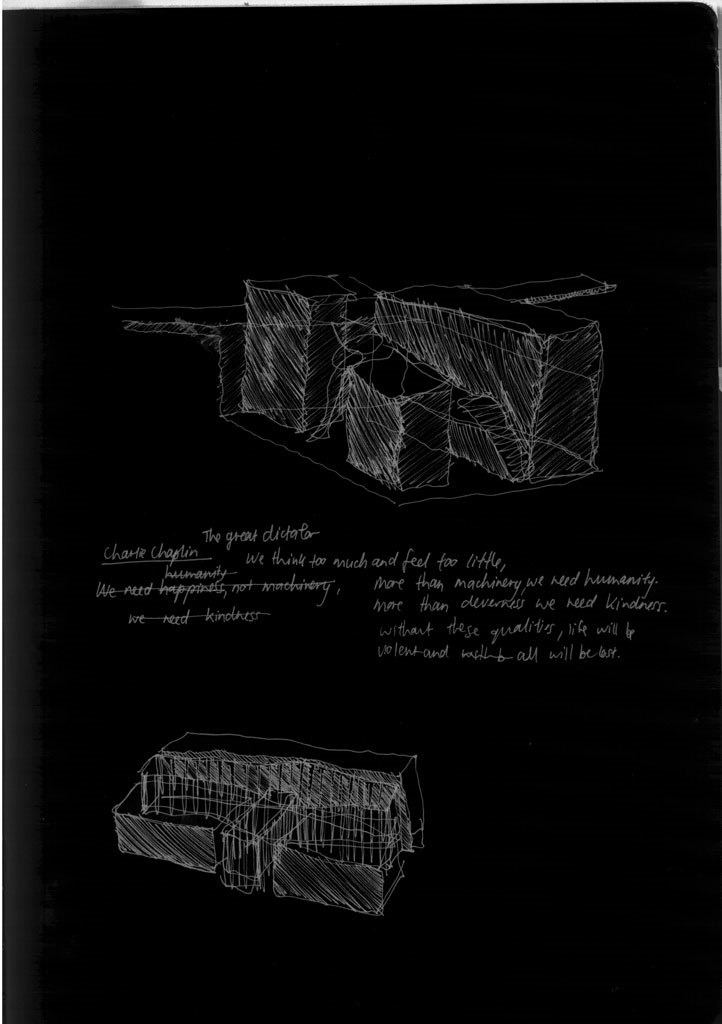 The great dictator
Charlie Chaplin
We think too much and feel too little,
humanity
We need happiness, not machinery,
more than machinery, we need humanity.
we need kindness
more than cleverness we need kindness.
without these qualities, life will be
violent and all will be lost.